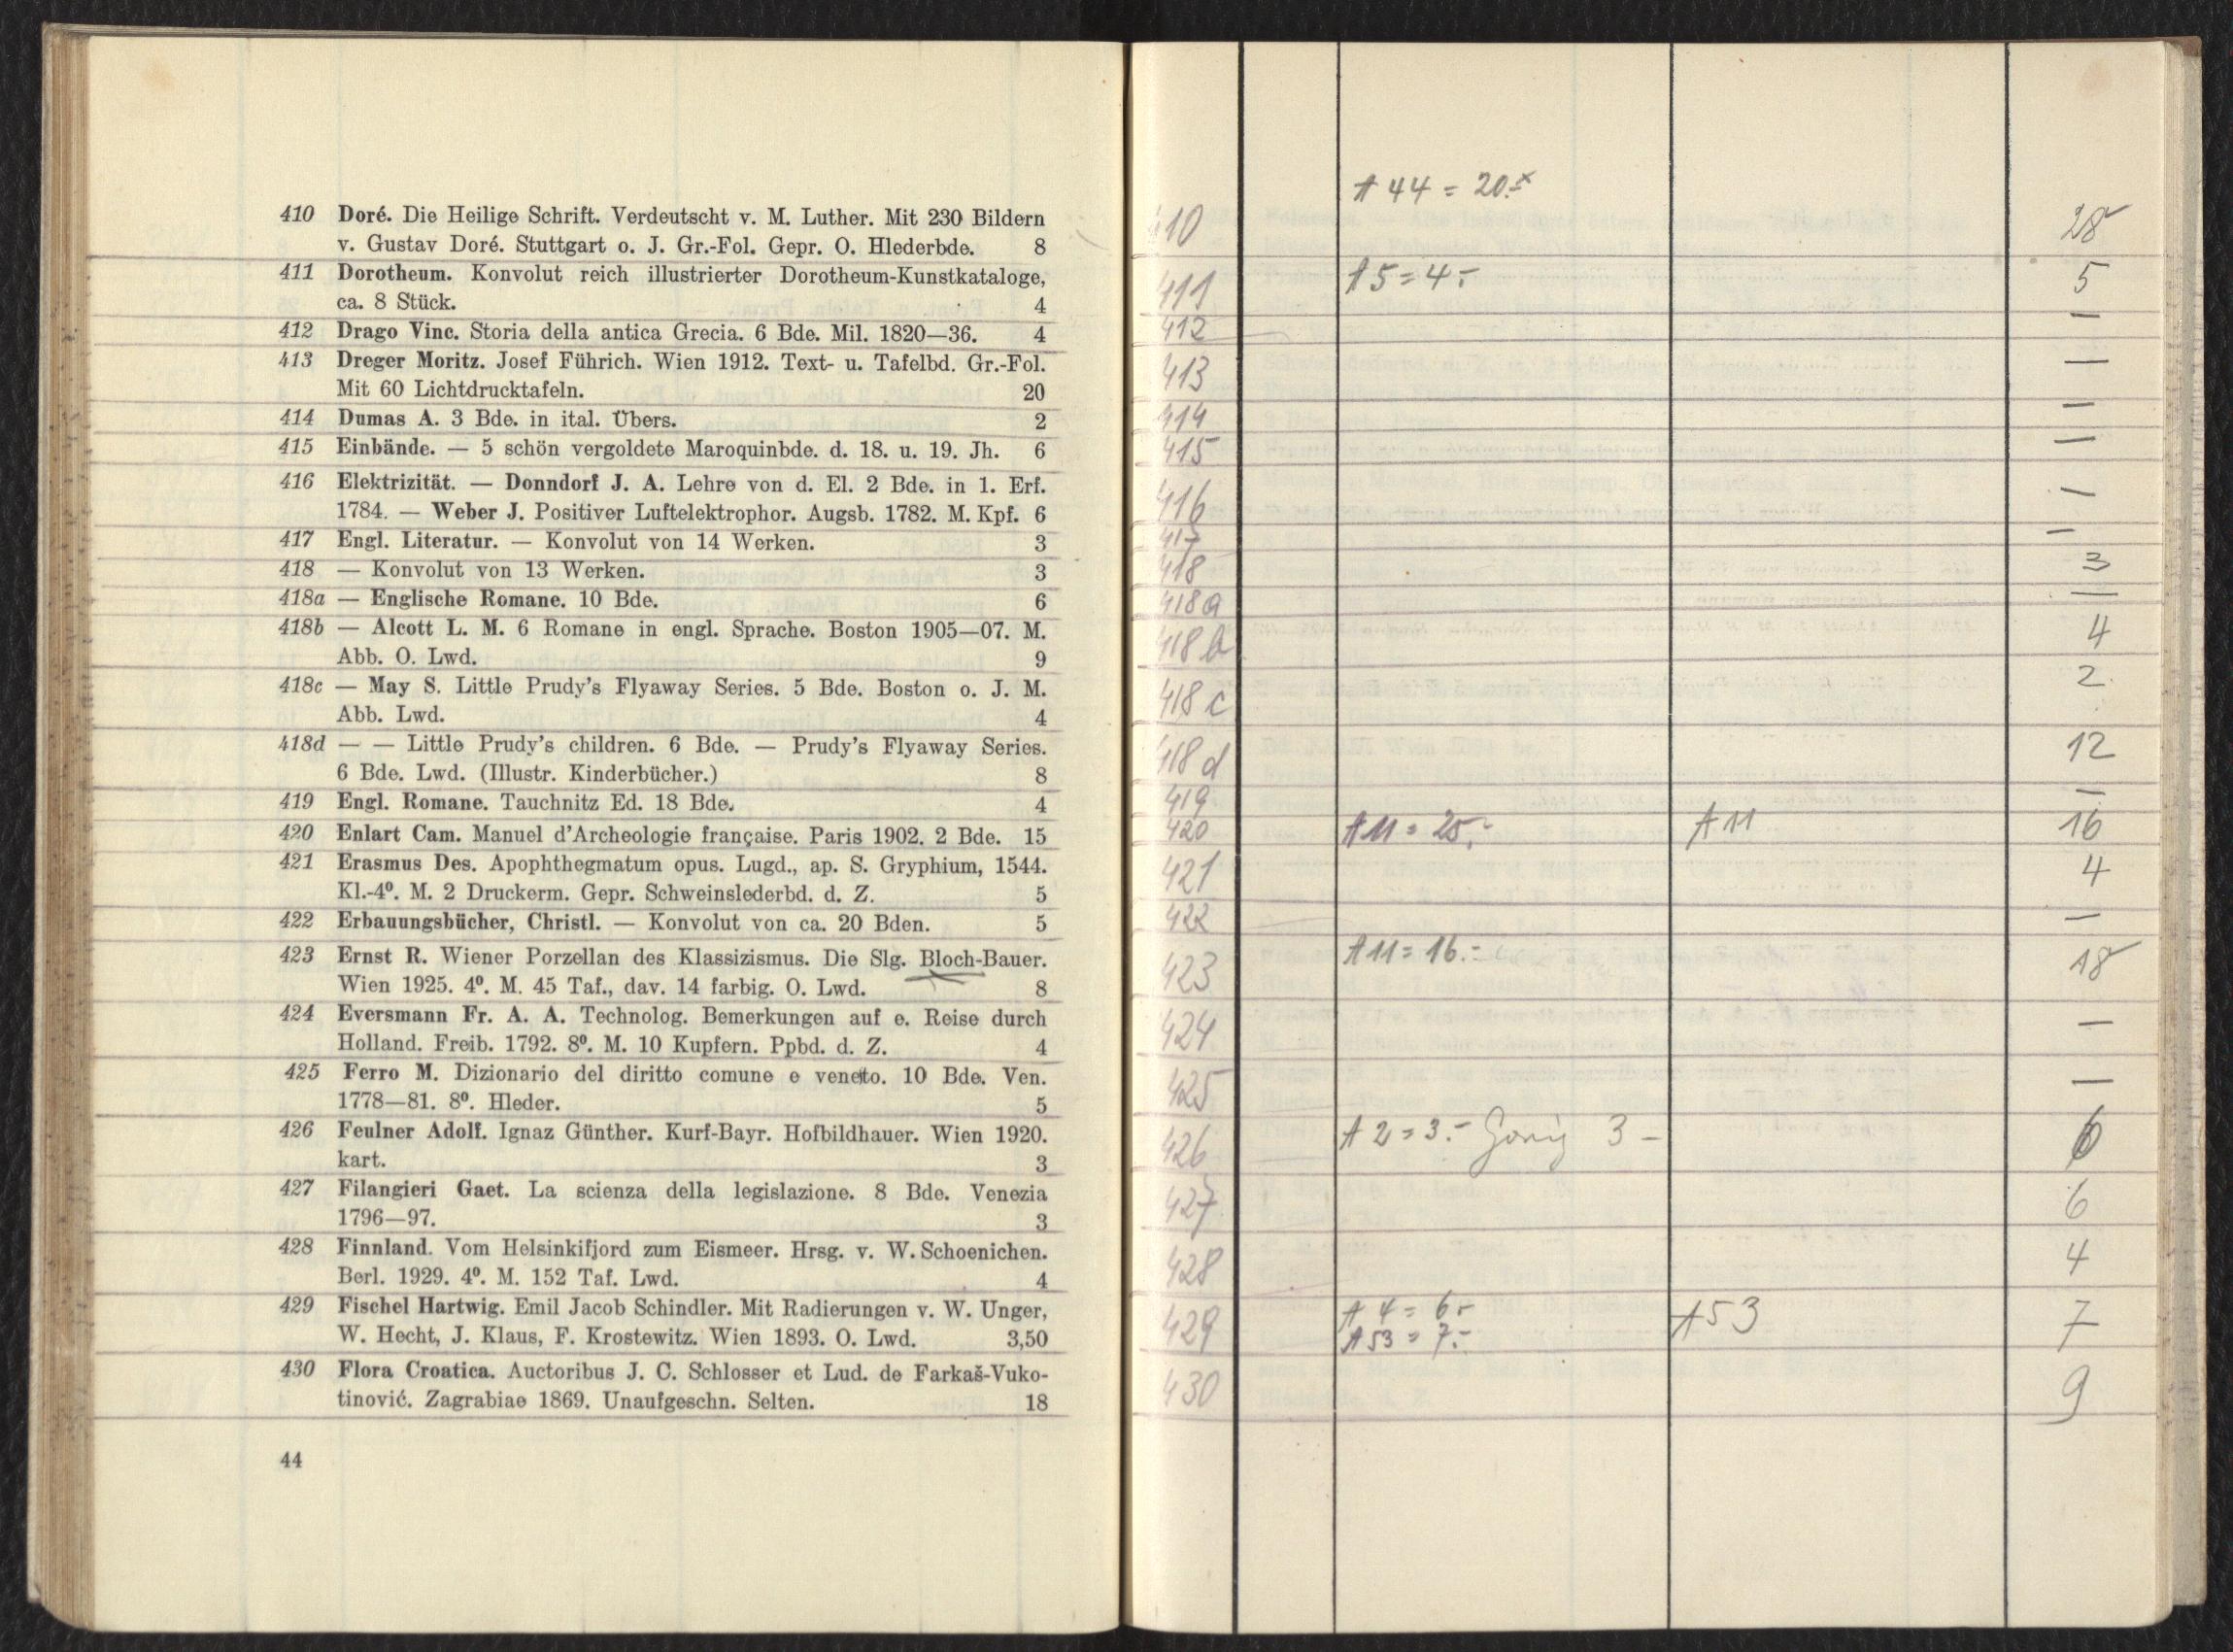 410 Doré. Die Heilige Schrift. Verdeutscht v. M. Luther. Mit 230 Bildern
v. Gustav Doré. Stuttgart o. J. Gr.-Fol. Gepr. O. Hlederbde. 8
411 Dorotheum. Konvolut reich illustrierter Dorotheum-Kunstkataloge,
ca. 8 Stück. 4
412 Drago Vinc. Storia della antica Grecia. 6 Bde. Mil. 1820—36. 4
413 Dreger Moritz. Josef Führich. Wien 1912. Text- u. Tafelbd. Gr.-Fol.
Mit 60 Lichtdrucktafeln. 20
414 Dumas A. 3 Bde. in ital. Übers. 2
415 Einbände. — 5 schön vergoldete Maroquinbde. d. 18. u. 19. Jh. 6
416 Elektrizität. — Donndorf J. A. Lehre von d. El. 2 Bde. in 1. Erf.
1784. — Weber J. Positiver Luftelektrophor. Augsb. 1782. M. Kpf. 6
417 Engl. Literatur. — Konvolut von 14 Werken. 3
418 — Konvolut von 13 Werken. 3
418a — Englische Romane. 10 Bde. 6
418b — Alcott L. M. 6 Romane in engl. Sprache. Boston 1905—07. M.
Abb. O. Lwd. 9
418c — May S. Little Prudy's Flyaway Series. 5 Bde. Boston o. J. M.
Abb. Lwd. 4
418d — — Little Prudy's children. 6 Bde. — Prudy's Flyaway Series.
6 Bde. Lwd. (Illustr. Kinderbücher.) 8
419 Engl. Romane. Tauchnitz Ed. 18 Bde. 4
420 Enlart Cam. Manuel d'Archeologie française. Paris 1902. 2 Bde. 15
421 Erasmus Des. Apophthegmatum opus. Lugd., ap. S. Gryphium, 1544.
Kl.-4⁰. M. 2 Druckerm. Gepr. Schweinslederbd. d. Z. 5
422 Erbauungsbücher, Christl. — Konvolut von ca. 20 Bden. 5
423 Ernst R. Wiener Porzellan des Klassizismus. Die Slg. Bloch-Bauer.
Wien 1925. 4⁰. M. 45 Taf., dav. 14 farbig. O. Lwd. 8
424 Eversmann Fr. A. A. Technolog. Bemerkungen auf e. Reise durch
Holland. Freib. 1792. 8⁰. M. 10 Kupfern. Ppbd. d. Z. 4
425 Ferro M. Dizionario del diritto comune e veneto. 10 Bde. Ven.
1778—81. 8⁰. Hleder. 5
426 Feulner Adolf. Ignaz Günther. Kurf-Bayr. Hofbildhauer. Wien 1920.
kart. 3
427 Filangieri Gaet. La scienza della legislazione. 8 Bde. Venezia
1796—97. 3
428 Finnland. Vom Helsinkifjord zum Eismeer. Hrsg. v. W. Schoenichen.
Berl. 1929. 4⁰. M. 152 Taf. Lwd. 4
429 Fischel Hartwig. Emil Jacob Schindler. Mit Radierungen v. W. Unger,
W. Hecht, J. Klaus, F. Krostewitz. Wien 1893. O. Lwd. 3,50
430 Flora Croatica. Auctoribus J. C. Schlosser et Lud. de Farkaš-Vuko-
tinović. Zagrabiae 1869. Unaufgeschn. Selten. 18
44
A 44 = 20.-x
410 28
411 A 5 = 4.- 5
412 —
413 —
414 —
415 —
416 —
417 —
418 3
418a —
418b 4
418c 2
418d 12
419 —
420 A 11 = 25.- A 11 16
421 4
422 —
423 A 11 = 16.- 18
424 —
425 —
426 A 2 = 3.- 3 - 6
427 6
428 4
429 A 4 = 6.- A 53 7
A 53 = 7.-
430 9